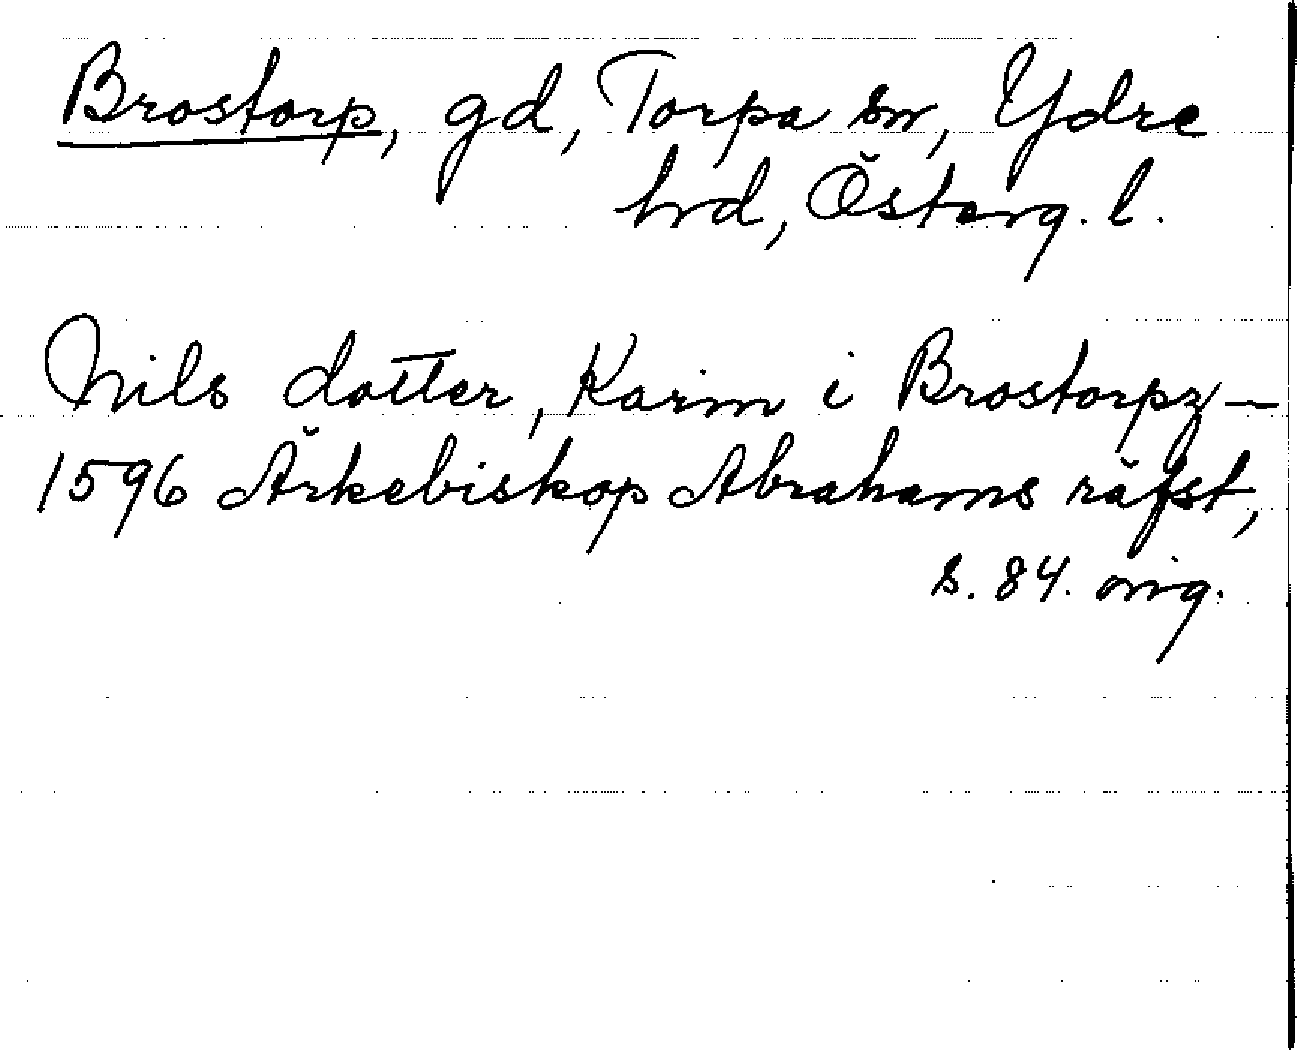 Brostorp, gd, Torpa sn, Ydre
hrd, Österg. l.
Nils dotter, Karin i Brostorpz –
1596 Ärkebiskop Abrahams räfst,
s. 84. orig.